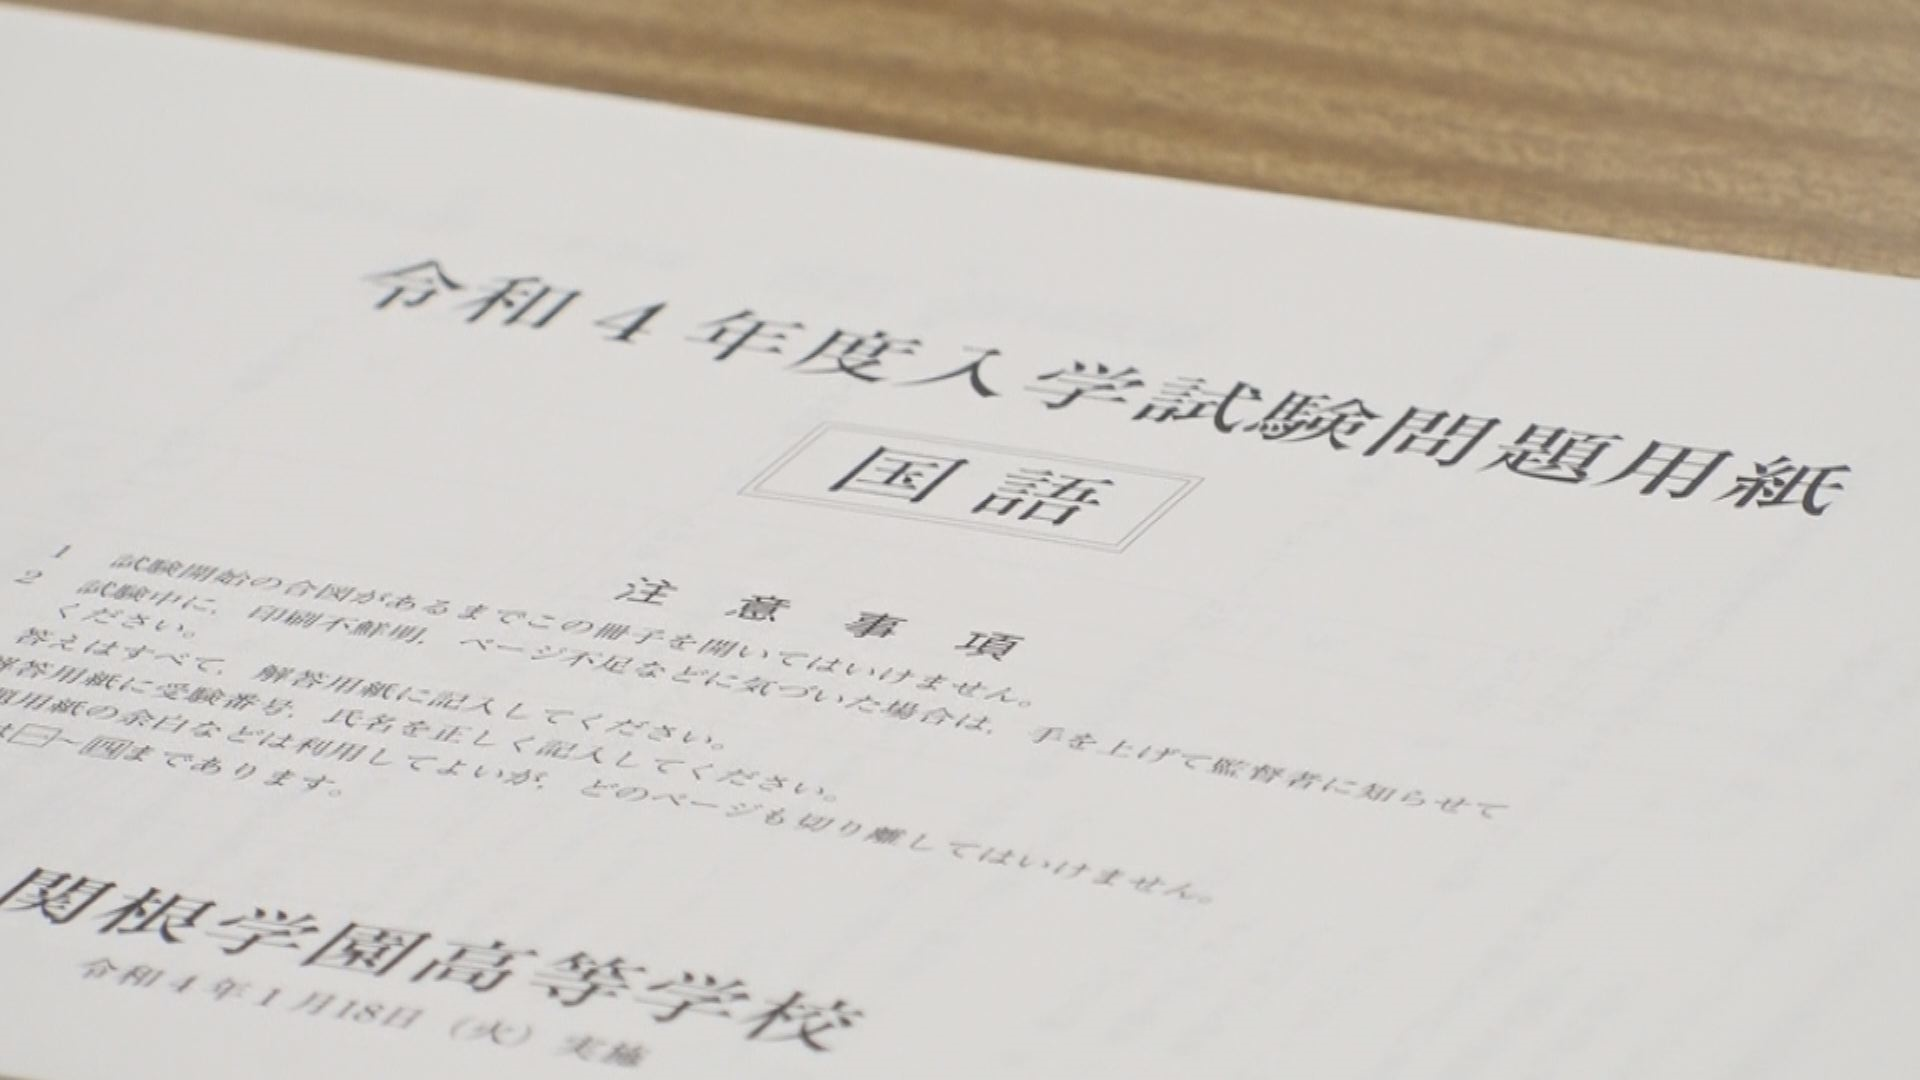 令和4年度入学試験問題用紙
国語
注意事項
1 試験開始の合図があるまでこの冊子を開いてはいけません。
2 試験中に，印刷不鮮明，ページ不足などに気づいた場合は，手を上げて監督者に知らせて
ください。
答えはすべて，解答用紙に記入してください。
解答用紙に受験番号，氏名を正しく記入してください。
題用紙の余白などは利用してよいが，どのページも切り離してはいけません。
は一～四まであります。
関根学園高等学校
令和4年1月18日（火）実施